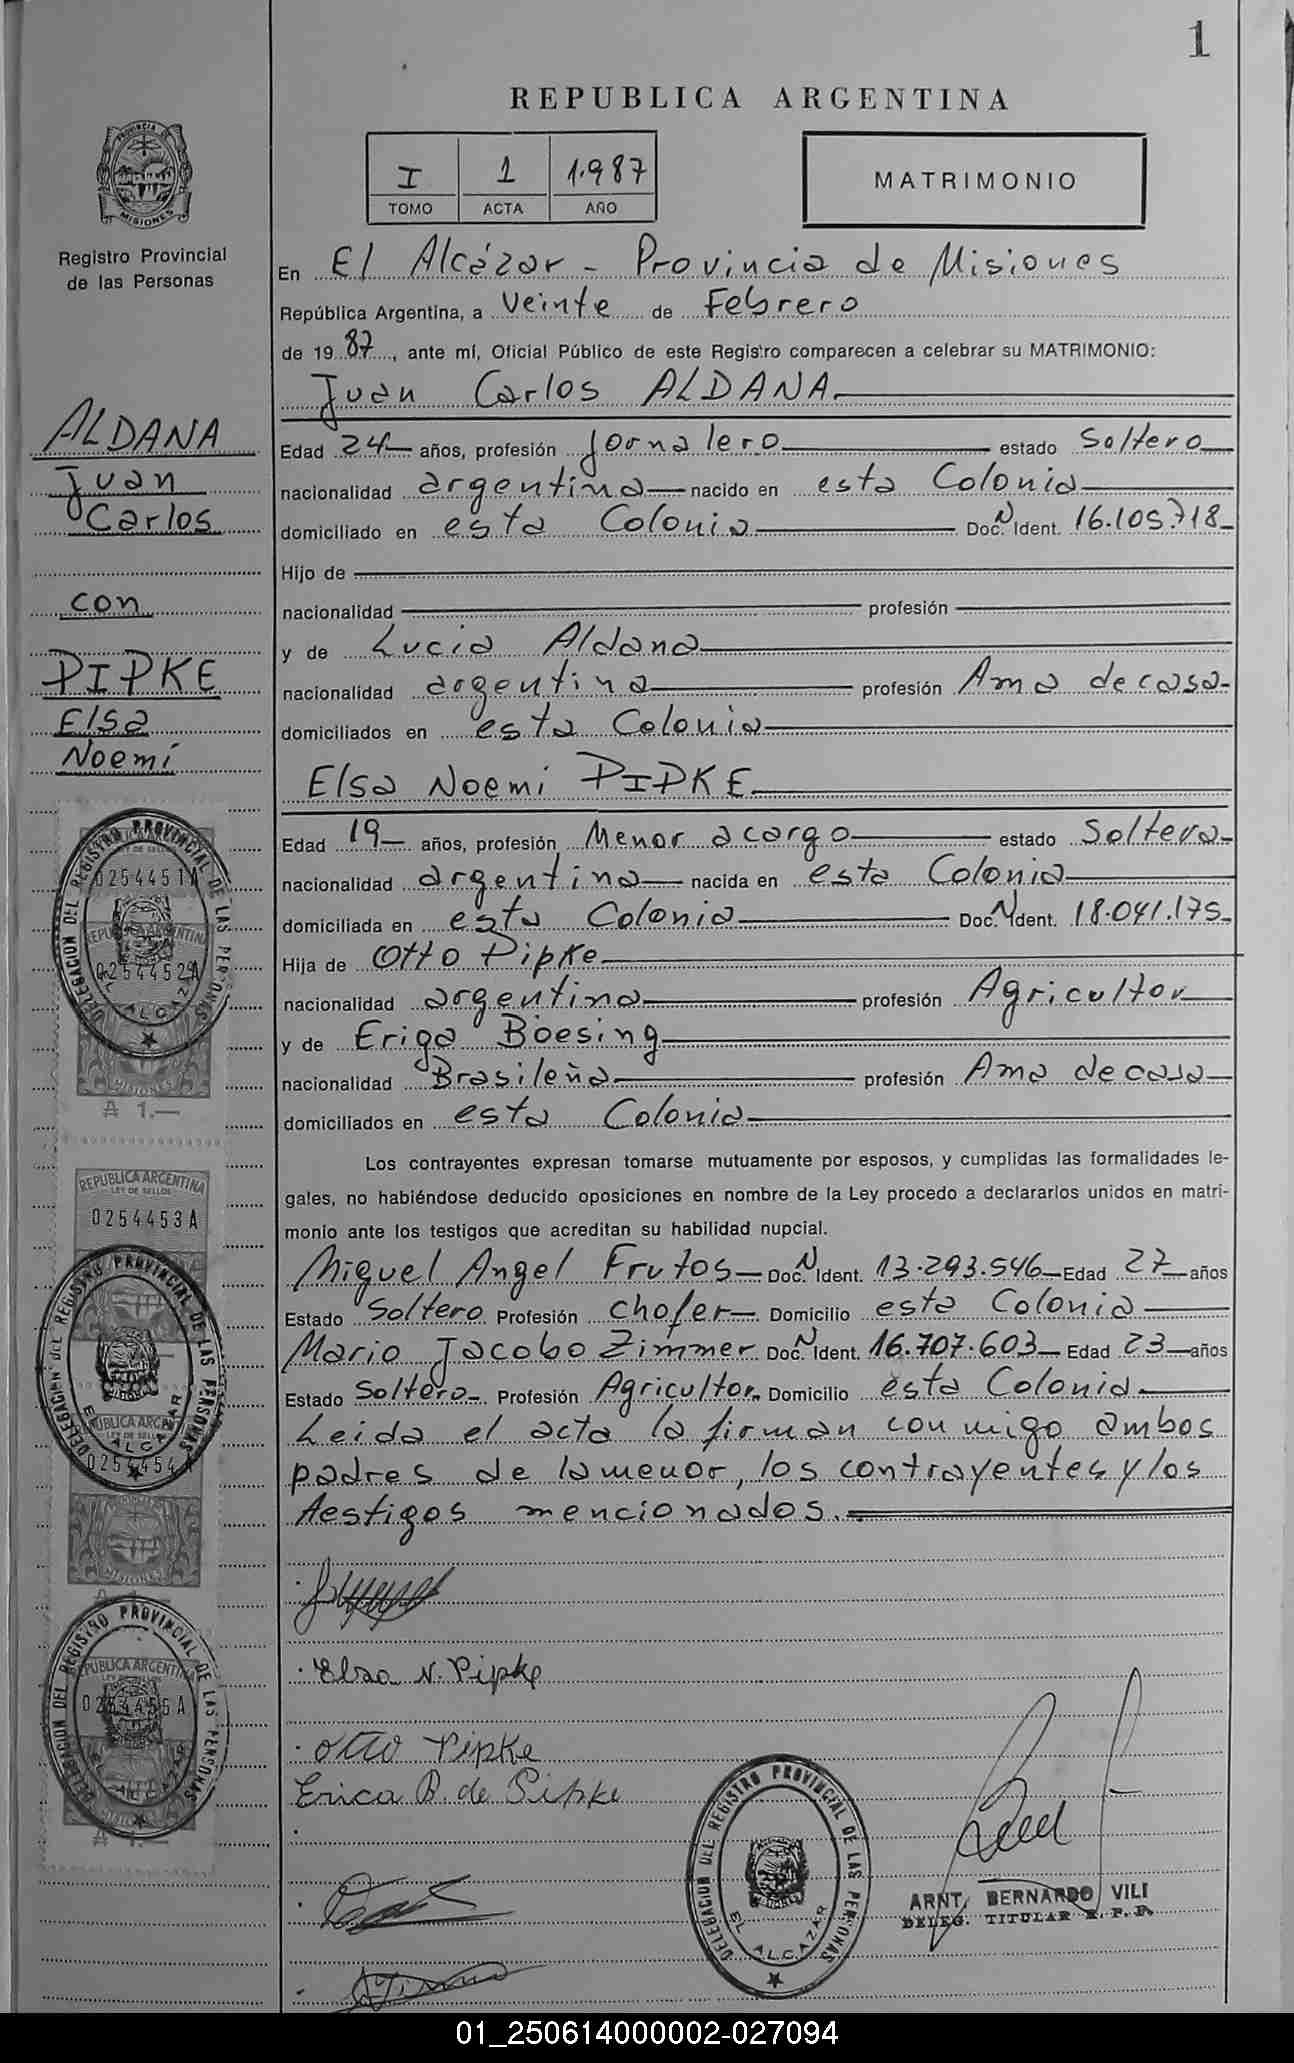 1
REPUBLICA ARGENTINA
PROVINCIA DE
MISIONES
Registro Provincial
de las Personas
I 1 1.987
TOMO ACTA AÑO
MATRIMONIO
En El Alcázar - Provincia de Misiones
República Argentina, a Veinte de Febrero
de 1987, ante mí, Oficial Público de este Registro comparecen a celebrar su MATRIMONIO:
Juan Carlos ALDANA
Edad 24 años, profesión Jornalero estado Soltero
nacionalidad argentina nacido en esta Colonia
domiciliado en esta Colonia Doc. N Ident. 16.105.718
Hijo de
nacionalidad profesión
y de Lucia Aldana
nacionalidad argentina profesión Ama de casa
domiciliados en esta Colonia
Elsa Noemi PIPKE
Edad 19 años, profesión Menor a cargo estado Soltera
nacionalidad argentina nacida en esta Colonia
domiciliada en esta Colonia Doc. N Ident. 18.041.175
Hija de Otto Pipke
nacionalidad argentina profesión Agricultor
y de Eriga Böesing
nacionalidad Brasileña profesión Ama de casa
domiciliados en esta Colonia
Los contrayentes expresan tomarse mutuamente por esposos, y cumplidas las formalidades le-
gales, no habiéndose deducido oposiciones en nombre de la Ley procedo a declararlos unidos en matri-
monio ante los testigos que acreditan su habilidad nupcial.
Miguel Angel Frutos Doc. N Ident. 13.293.546 Edad 27 años
Estado Soltero Profesión chofer Domicilio esta Colonia
Mario Jacobo Zimmer Doc. N Ident. 16.707.603 Edad 23 años
Estado Soltero Profesión Agricultor Domicilio esta Colonia
Leida el acta la firman conmigo ambos
padres de la menor, los contrayentes y los
testigos mencionados.
Elsa N. Pipke
Otto Pipke
Erica B. de Pipke
DELEGACION DEL REGISTRO PROVINCIAL DE LAS PERSONAS
EL ALCAZAR
ARNT, BERNARDO VILI
DELEG. TITULAR R. P. P.
ALDANA
Juan
Carlos
con
PIPKE
Elsa
Noemí
DELEGACION DEL REGISTRO PROVINCIAL DE LAS PERSONAS
0254451A
REPUBLICA ARGENTINA
0254452A
EL ALCAZAR
MISIONES
A 1.—
REPUBLICA ARGENTINA
LEY DE SELLOS
0254453A
DELEGACION DEL REGISTRO PROVINCIAL DE LAS PERSONAS
EL ALCAZAR
0254454
MISIONES
DELEGACION DEL REGISTRO PROVINCIAL DE LAS PERSONAS
0254455A
EL ALCAZAR
01_250614000002-027094